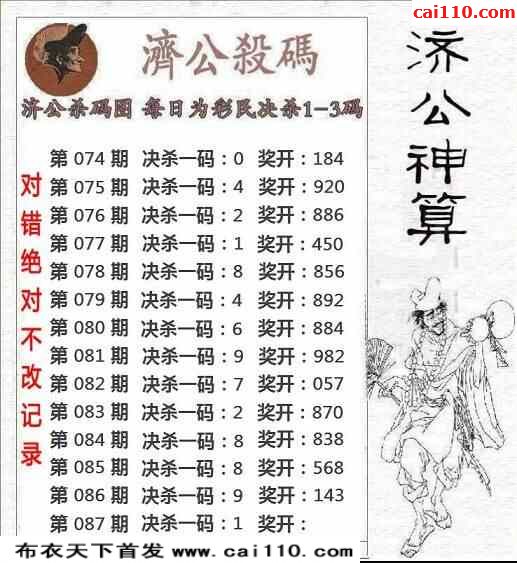 cai110.com
濟公殺碼
济公杀码图 每日为彩民决杀1-3码
济公神算
对错绝对不改记录
第 074 期 决杀一码：0 奖开：184
第 075 期 决杀一码：4 奖开：920
第 076 期 决杀一码：2 奖开：886
第 077 期 决杀一码：1 奖开：450
第 078 期 决杀一码：8 奖开：856
第 079 期 决杀一码：4 奖开：892
第 080 期 决杀一码：6 奖开：884
第 081 期 决杀一码：9 奖开：982
第 082 期 决杀一码：7 奖开：057
第 083 期 决杀一码：2 奖开：870
第 084 期 决杀一码：8 奖开：838
第 085 期 决杀一码：8 奖开：568
第 086 期 决杀一码：9 奖开：143
第 087 期 决杀一码：1 奖开：
布衣天下首发 www.cai110.com